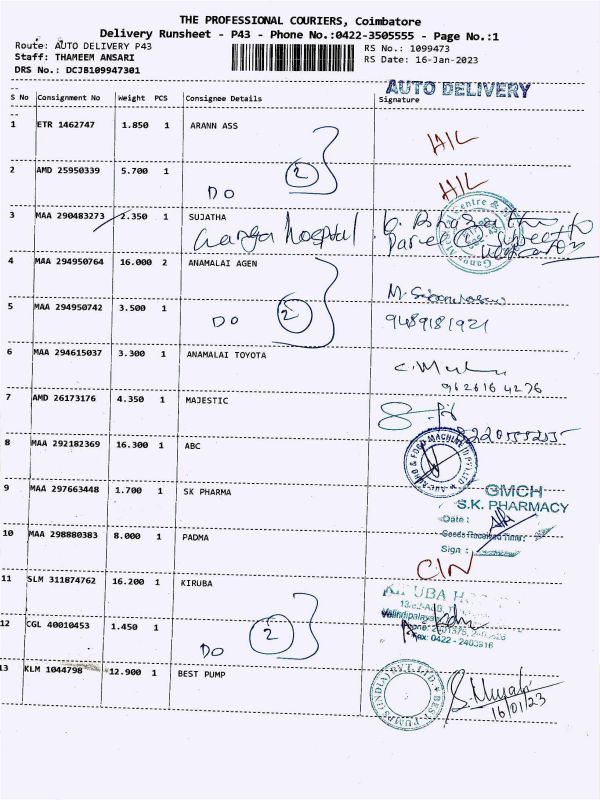 THE PROFESSIONAL COURIERS, Coimbatore
Delivery Runsheet - P43 - Phone No.:0422-3505555 - Page No.:1
Route: AUTO DELIVERY P43
RS No.: 1099473
Staff: THAMEEM ANSARI
RS Date: 16-Jan-2023
DRS No.: DCJB109947301
AUTO DELIVERY
S No Consignment No Weight PCS Consignee Details Signature
1 ETR 1462747 1.850 1 ARANN ASS
H/L
2 AMD 25950339 5.700 1
DO 2
H/L
3 MAA 290483273 2.350 1 SUJATHA
Ganga hospital
4 MAA 294950764 16.000 2 ANAMALAI AGEN
5 MAA 294950742 3.500 1
DO 2
9489181921
6 MAA 294615037 3.300 1 ANAMALAI TOYOTA
9626164276
7 AMD 26173176 4.350 1 MAJESTIC
8220555255
8 MAA 292182369 16.300 1 ABC
9 MAA 297663448 1.700 1 SK PHARMA
GMCH
S.K. PHARMACY
Date :
Goods Received Time :
Sign :
10 MAA 298880383 8.000 1 PADMA
C/N
11 SLM 311874762 16.200 1 KIRUBA
Fax: 0422 - 2403916
12 CGL 40010453 1.450 1
DO 2
13 KLM 1044798 12.900 1 BEST PUMP
BEST PUMPS (INDIA) PVT. LTD
16/01/23